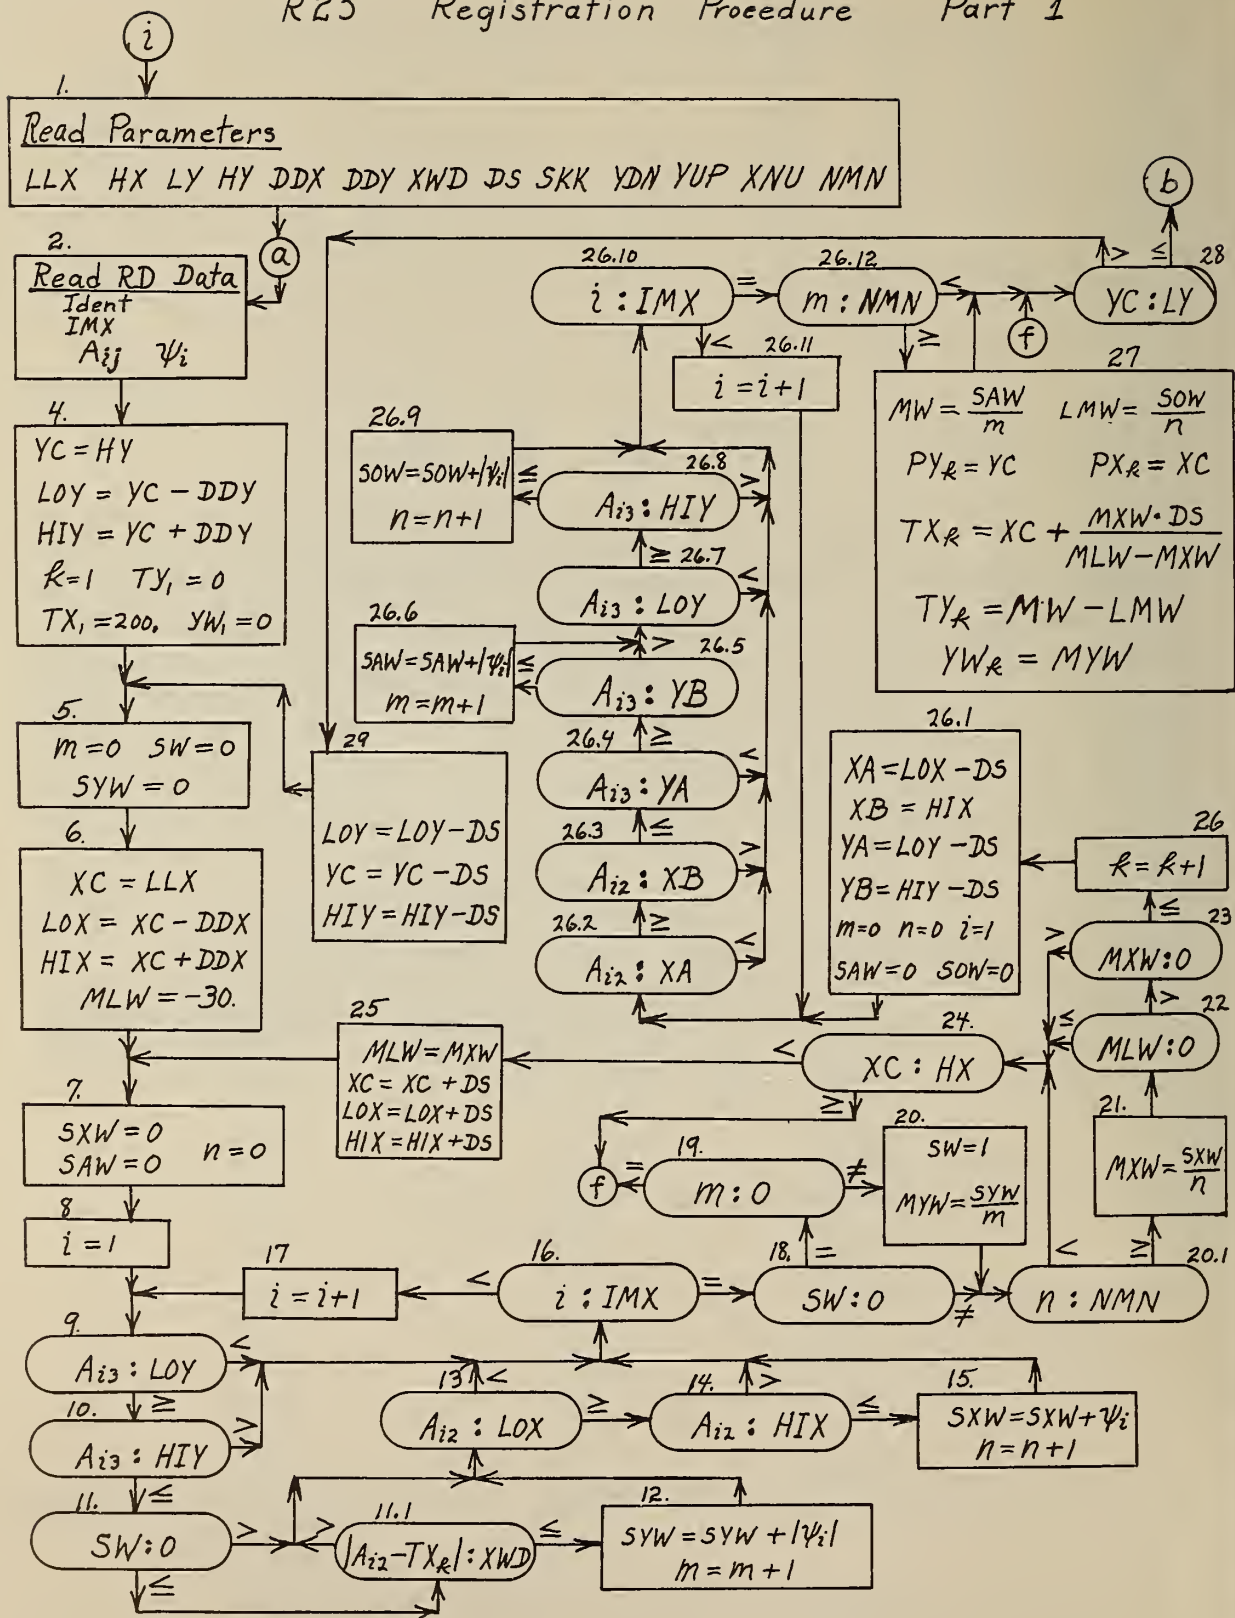 R25 Registration Procedure Part 1
i
1.
Read Parameters
LLX HX LY HY DDX DDY XWD DS SKK YDN YUP XNU NMN
a
2.
Read RD Data
Ident
IMX
Aij ψi
4.
YC = HY
LOY = YC - DDY
HIY = YC + DDY
k=1 TY₁ = 0
TX₁ = 200. YW₁ = 0
5.
m=0 SW=0
SYW = 0
6.
XC = LLX
LOX = XC - DDX
HIX = XC + DDX
MLW = -30.
7.
SXW = 0
SAW = 0 n = 0
8
i = 1
17
i = i+1
<
16.
i : IMX
=
9.
Ai3 : LOY
<
≥
10.
Ai3 : HIY
>
≤
11.
SW : 0
>
≤
11.1
|Ai2 - TXk| : XWD
>
≤
12.
SYW = SYW + |ψi|
m = m + 1
13
<
Ai2 : LOX
≥
14.
>
Ai2 : HIX
≤
15.
SXW = SXW + ψi
n = n + 1
18.
=
SW : 0
≠
19.
=
m : 0
≠
f
20.
SW = 1
MYW = SYW/m
20.1
<
≥
n : NMN
21.
MXW = SXW/n
22
>
≤
MLW : 0
23
≤
>
MXW : 0
26
k = k+1
24.
<
XC : HX
≥
25
MLW = MXW
XC = XC + DS
LOX = LOX + DS
HIX = HIX + DS
26.1
XA = LOX - DS
XB = HIX
YA = LOY - DS
YB = HIY - DS
m=0 n=0 i=1
SAW = 0 SOW = 0
26.2
≥
Ai2 : XA
<
26.3
≤
Ai2 : XB
>
26.4
≥
Ai3 : YA
<
26.5
>
≤
Ai3 : YB
26.6
SAW = SAW + |ψi|
m = m+1
26.7
≥
Ai3 : LOY
<
26.8
≤
Ai3 : HIY
>
26.9
SOW = SOW + |ψi|
n = n+1
26.10
i : IMX
=
<
26.11
i = i+1
26.12
m : NMN
<
≥
f
27
MW = SAW/m LMW = SOW/n
PYk = YC PXk = XC
TXk = XC + MXW·DS/MLW-MXW
TYk = MW - LMW
YWk = MYW
28
> ≤
YC : LY
b
29
LOY = LOY - DS
YC = YC - DS
HIY = HIY - DS